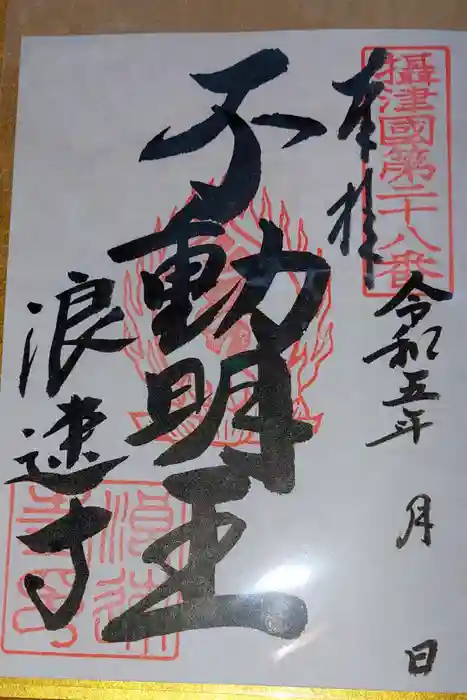 攝津國第二十八番
奉拝
令和五年 月 日
不動明王
浪速寺